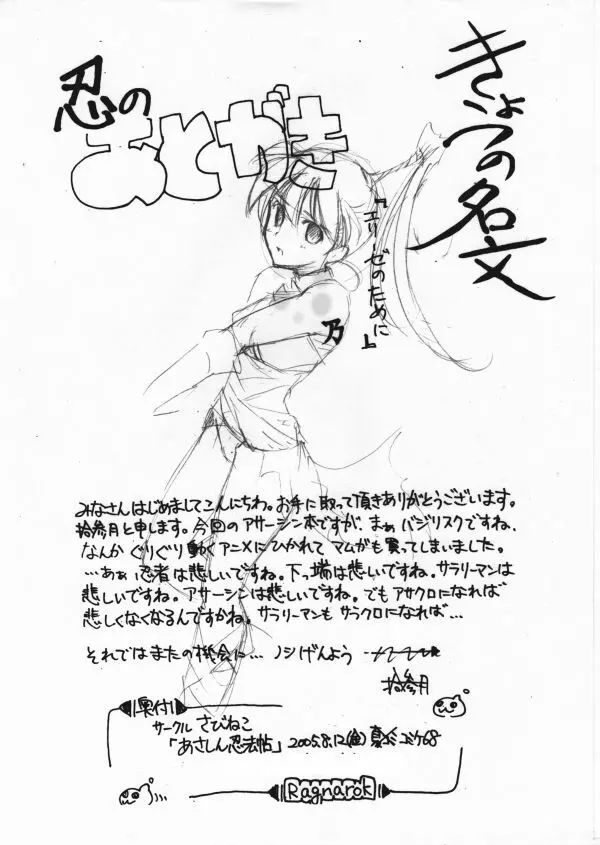 きょうの名文
『エリーゼのために』
忍の
あとがき
乃
みなさんはじめましてこんにちわ。お手に取って頂きありがとうございます。
拾参月と申します。今回のアサシーン本ですが、まぁ バジリスクですね、
なんか ぐりぐり動くアニメにひかれて マムがも買ってしまいました。
…あぁ 忍者は悲しいですね。下っ端は悲しいですね。サラリーマンは
悲しいですね。アサシーンは悲しいですね。でも アサクロになれば
悲しくなくなるんですかね。サラリーマンも サラクロになれば…
それではまたの機会に… ノシげんよう
拾参月
奥付
サークル さびねこ
「あさしん忍法帖」 2005.8.12(金) 夏コミ コミケ68
Ragnarok